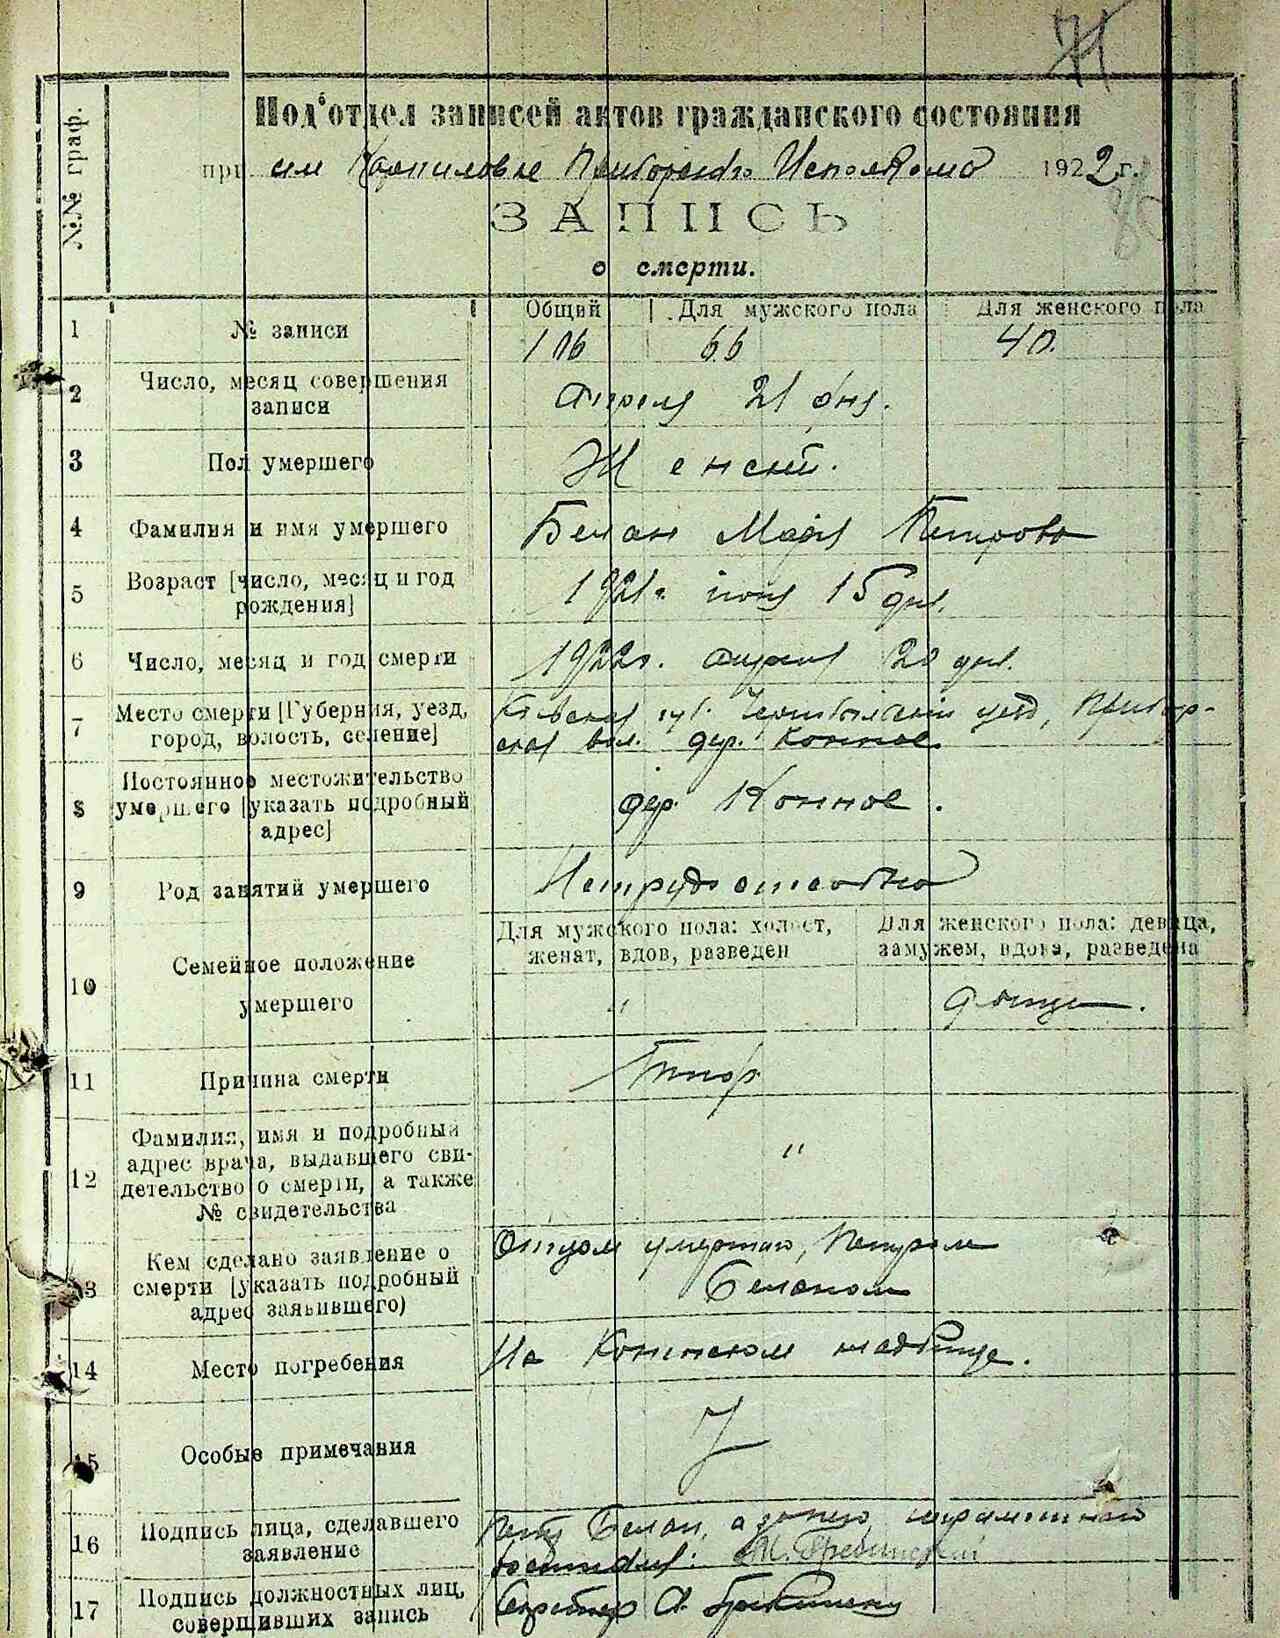 71
№№ граф.
Под'отдел записей актов гражданского состояния
при Приборского Исполкома 1922 г.
ЗАПИСЬ
о смерти.
1 № записи Общий Для мужского пола Для женского пола
106 66 40.
2 Число, месяц совершения записи Апреля 21 дня.
3 Пол умершего Женский.
4 Фамилия и имя умершего Белан Мария Петрова
5 Возраст [число, месяц и год рождения] 1921 г. июня 15 дня.
6 Число, месяц и год смерти 1922 г. апреля 20 дня.
7 Место смерти [Губерния, уезд, город, волость, селение] Киевская губ. Чернобыльский уезд, Прибор-
ская вол. дер. Конное.
8 Постоянное местожительство умершего [указать подробный адрес] дер. Конное.
9 Род занятий умершего
Для мужского пола: холост, женат, вдов, разведен Для женского пола: девица, замужем, вдова, разведена
10 Семейное положение умершего " девица.
11 Причина смерти
12 Фамилия, имя и подробный адрес врача, выдавшего сви-
детельство о смерти, а также № свидетельства "
13 Кем сделано заявление о смерти [указать подробный адрес заявившего) Отцом умершей, Петром
Беланом
14 Место погребения На Коннском кладбище.
15 Особые примечания
16 Подпись лица, сделавшего заявление Петр Белан, а за него, неграмотного
17 Подпись должностных лиц, совершивших запись Секретарь А.